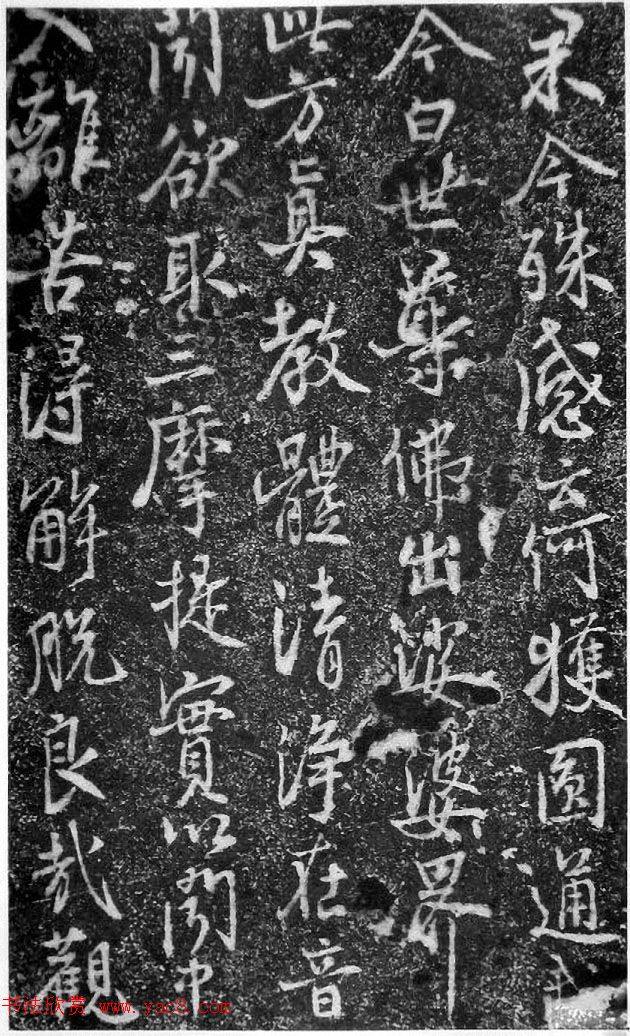 果今殊感云何獲圓通我
今白世尊佛出娑婆界
此方真教體清淨在音
聞欲取三摩提實以聞中
入離苦得解脫良哉觀
书法欣赏 www.yac8.com